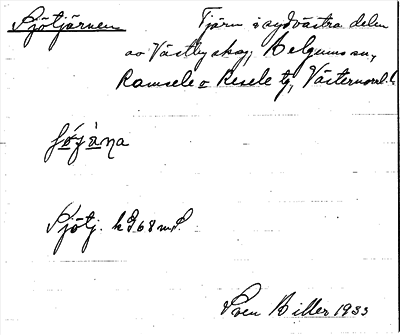 Sjötjärnen Tjärn i sydvästra delen
av Västbyskog, Helgums sn,
Ramsele o Resele tg, Västernorrl. l.
Sjötj. h 968 m.S.
Sven Biller 1933